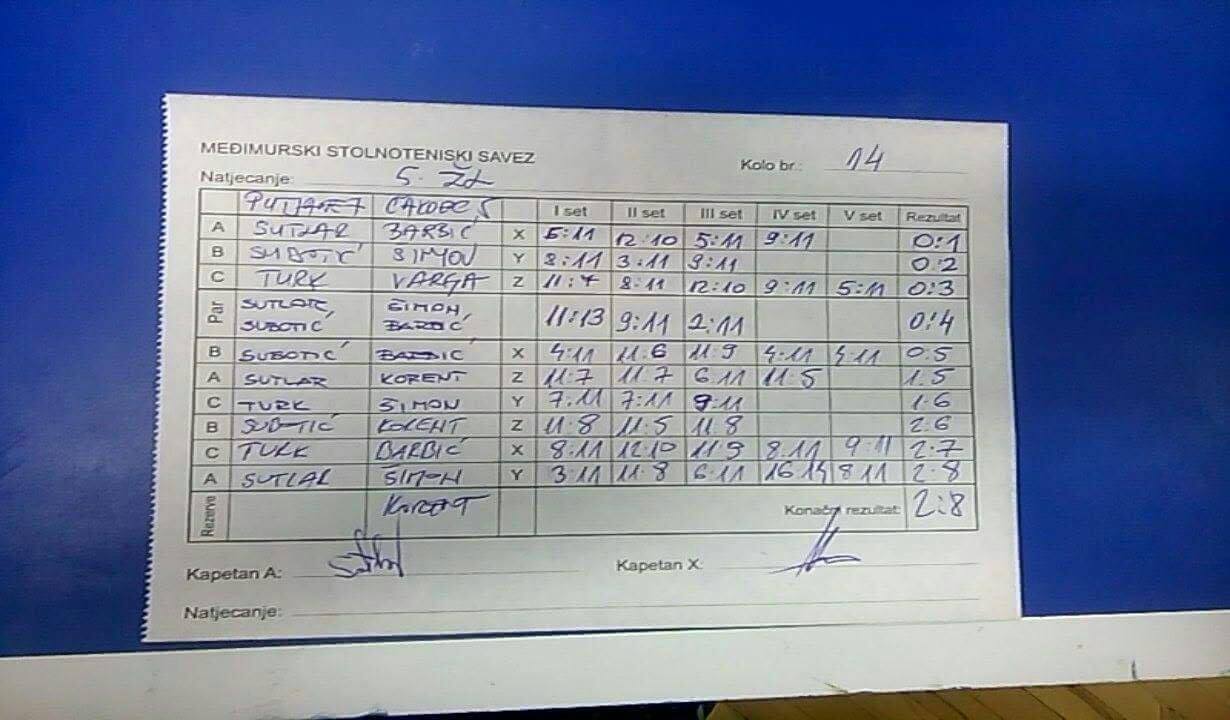 MEĐIMURSKI STOLNOTENISKI SAVEZ Kolo br.: 14
Natjecanje: 5. ŽL
ČAKOVEC 5 I set II set III set IV set V set Rezultat
A SUTLAR BARBIĆ X 5:11 12:10 5:11 9:11 0:1
B SUBOTIĆ ŠIMON Y 8:11 3:11 9:11 0:2
C TURK VARGA Z 11:7 8:11 12:10 9:11 5:11 0:3
Par SUTLAR, ŠIMON, 11:13 9:11 2:11 0:4
SUBOTIĆ BARBIĆ
B SUBOTIĆ BARBIĆ X 4:11 11:6 11:9 4:11 4:11 0:5
A SUTLAR KORENT Z 11:7 11:7 6:11 11:5 1:5
C TURK ŠIMON Y 7:11 7:11 9:11 1:6
B SUBOTIĆ KORENT Z 11:8 11:5 11:8 2:6
C TURK BARBIĆ X 8:11 12:10 11:9 8:11 9:11 2:7
A SUTLAR ŠIMON Y 3:11 11:8 6:11 16:14 8:11 2:8
Rezerve KORENT Konačni rezultat: 2:8
Kapetan A: Kapetan X:
Natjecanje: